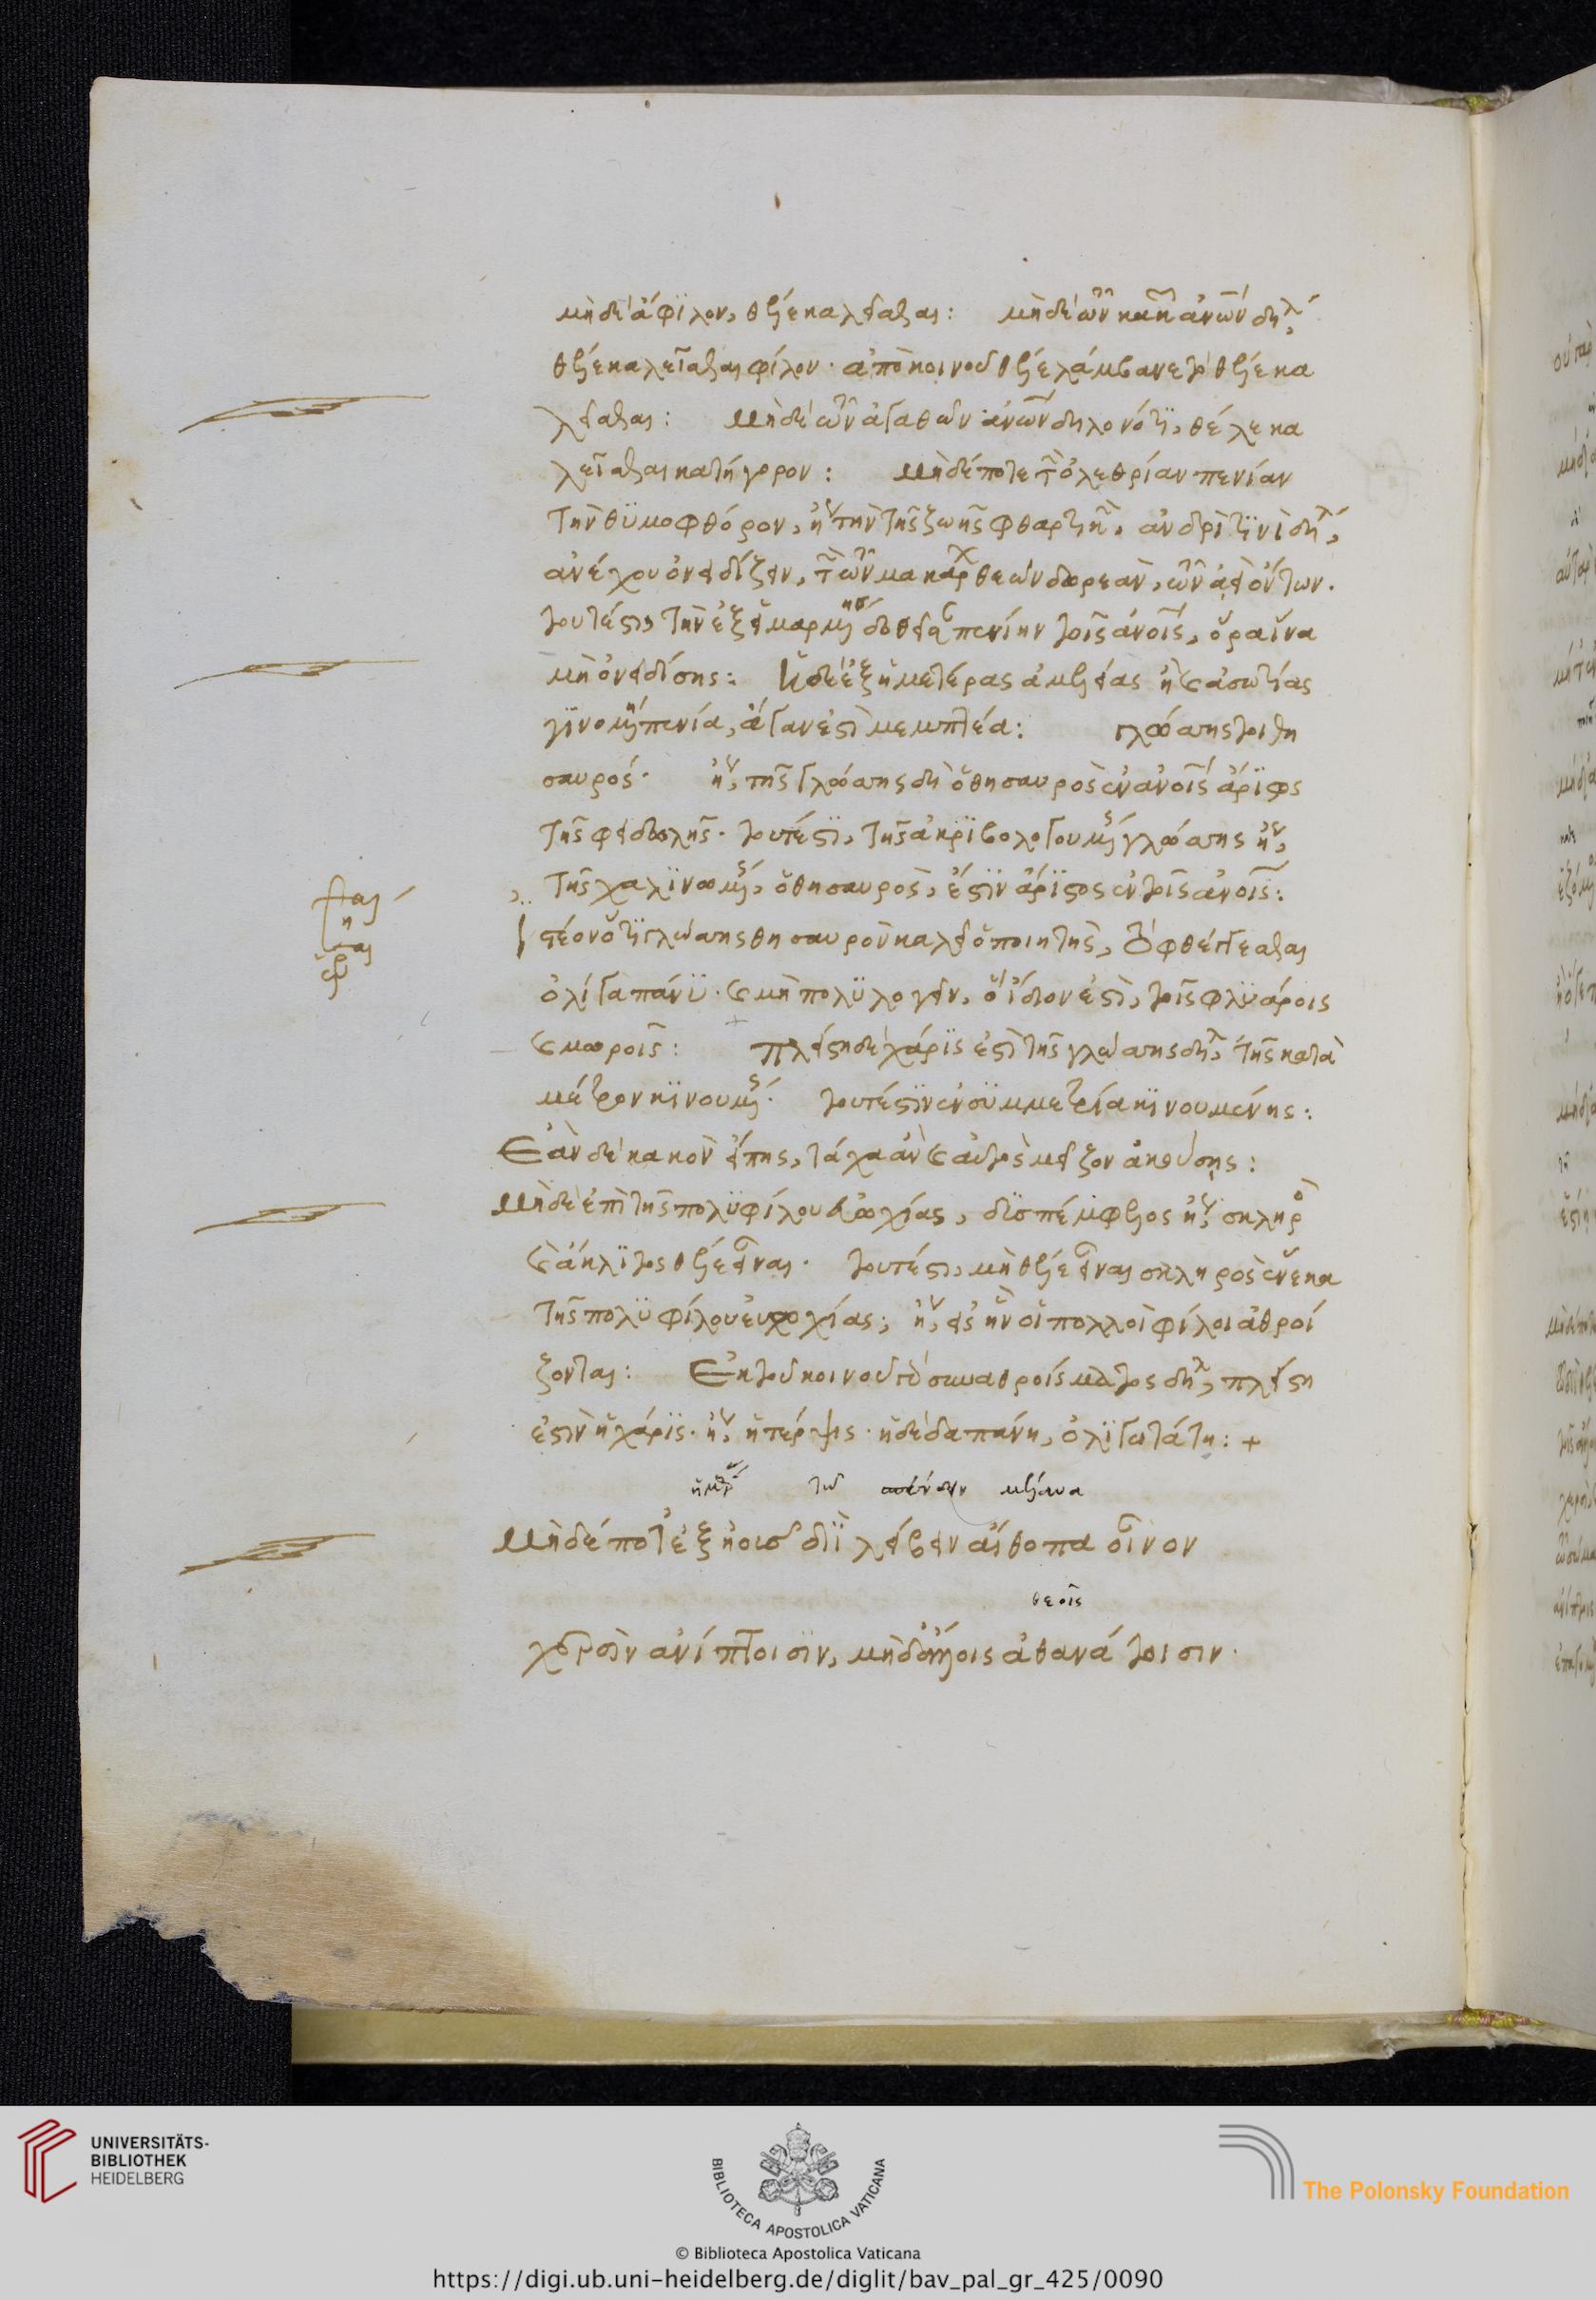 μὴ δὲ ἄφιλον, θέλε καλεῖσθαι: μὴ δὲ τῶν κακῶν ἀνων δηλ
θέλε καλεῖσθαι φίλον· ἀπὸ κοινοῦ θέλε λάμβανε τὸ θέλε κα
λεῖσθαι: μὴ δὲ τῶν ἀγαθῶν ἀνων δηλονότι, θέλε κα
λεῖσθαι κατήγορον: μὴ δέποτε τὴν ὀλεθρίαν πενίαν
τὴν θυμοφθόρον, ἤγουν τὴν τῆς ζωῆς φθαρτικὴν, ἀνδρὶ τινὶ δηλ,
ἀνέχου ὀνειδίζειν, τὴν τῶν μακαρ θεῶν δωρεὰν, τῶν ἀεὶ ὄντων.
τουτέστι, τὴν ἐξ εἱμαρμένης δοθεῖσαν πενίην τοῖς ἀνοις, ὅρα ἵνα
μὴ ὀνειδίσης: ἡ δὲ ἐξ ἡμετέρας ἀμελείας ἢ καὶ ἀσωτίας
γινομένη πενία, ἄγαν ἐστὶ μεμπτέα: γλώσσης τοι θη
σαυρός· ἤγουν, τῆς γλώσσης δὴ ὁ θησαυρὸς ἐν ἀνοις ἄριστος
τῆς φειδωλῆς· τουτέστι, τῆς ἀκριβολογουμένης γλώσσης ἤγουν,
τῆς χαλινωμένης, ὁ θησαυρὸς, ἐστὶν ἄριστος ἐν τοῖς ἀνοις:
ἰστέον ὅτι γλώσσης θησαυρὸν καλεῖ ὁ ποιητὴς, τὸ φθέγγεσθαι
ὀλίγα πάνυ· καὶ μὴ πολυλογεῖν, ὃ ἴδιον ἐστὶ, τοῖς φλυάροις
καὶ μωροῖς: πλείστη δὲ χάρις ἐστὶ τῆς γλώσσης δηλ, τῆς κατὰ
μέτρον κινουμένης· τουτέστιν ἐν συμμετρία κινουμένης:
Ἐὰν δὲ κακὸν εἴπης, τάχα ἂν καὶ αὐτὸς μεῖζον ἀκούσης:
μὴ δὲ ἐπὶ τῆς πολυφίλου εὐωχίας, δυσπέμφελος ἤγουν, σκληρὸς
καὶ ἄκλιτος θέλε εἶναι· τουτέστι, μὴ θέλε εἶναι σκληρὸς ἕνεκα
τῆς πολυφίλου εὐωχίας; ἤγουν, εἰς ἣν οἱ πολλοὶ φίλοι ἀθροί
ζονται: Ἐκ τοῦ κοινοῦ τοῦ συναθροίσματος δηλ, πλείστη
ἐστὶν ἡ χάρις· ἤγουν, ἡ τέρψις· ἡ δὲ δαπάνη, ὀλιγωτάτη: +
τῶ μέλανα
Μὴ δέ ποτ' ἐξ ἠοῦς διὶ λείβειν αἴθοπα οἶνον
θεοῖς
χερσὶν ἀνίπτοισιν, μὴ δ' ἄλλοις ἀθανάτοισιν·
UNIVERSITÄTS-
BIBLIOTHEK
HEIDELBERG
BIBLIOTECA APOSTOLICA VATICANA
The Polonsky Foundation
© Biblioteca Apostolica Vaticana
https://digi.ub.uni-heidelberg.de/diglit/bav_pal_gr_425/0090